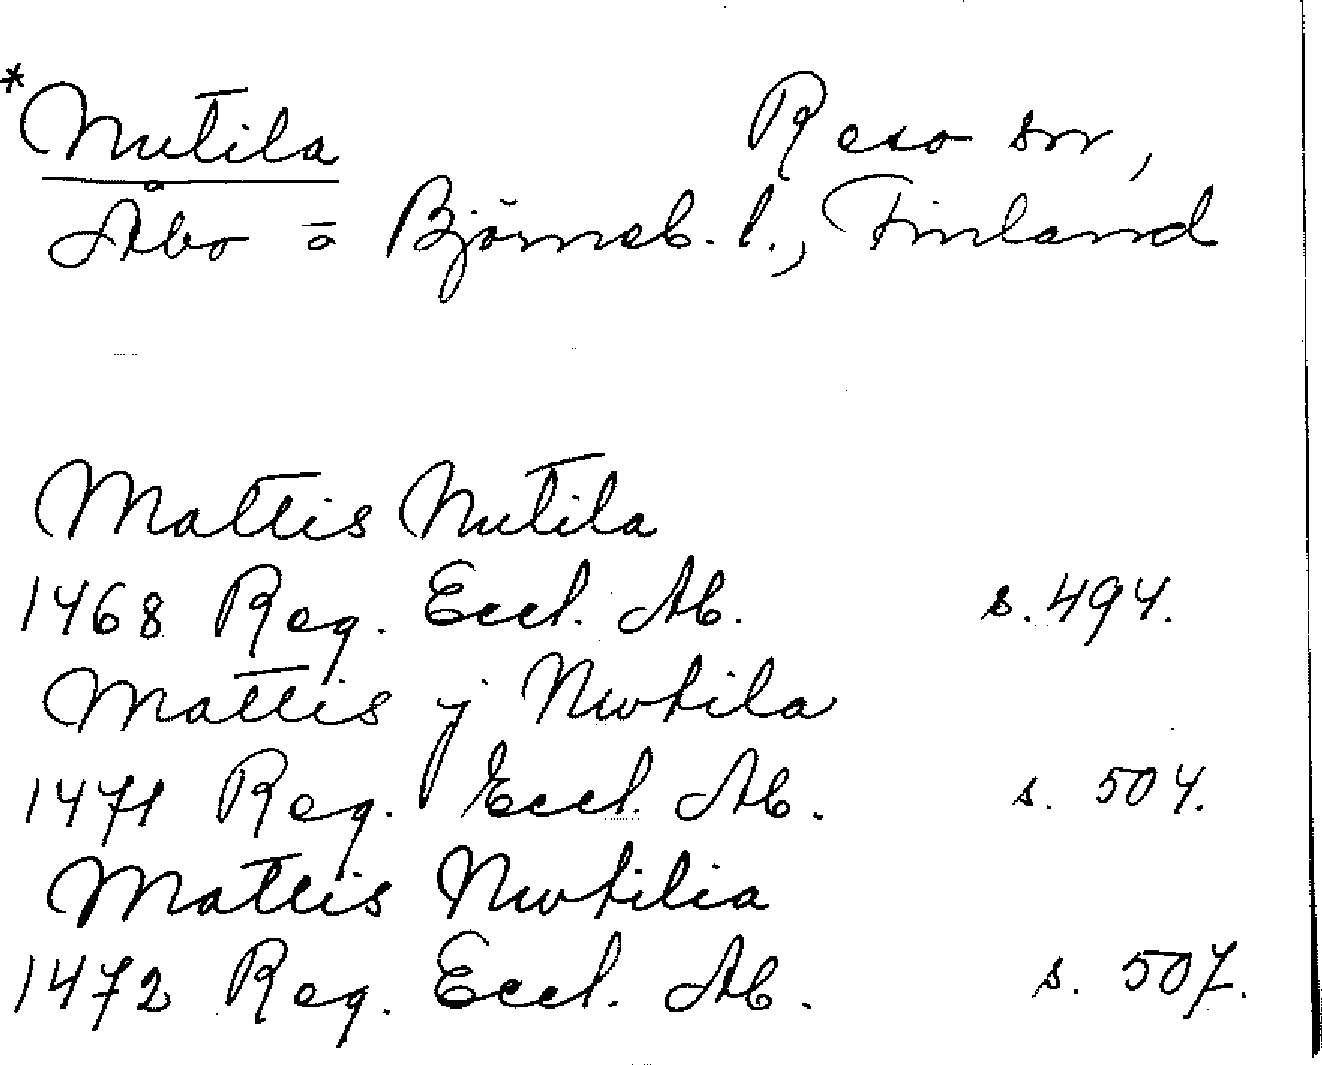 *Nutila Reso sn,
Åbo o Björneb. l., Finland
Mattis Nutila
1468 Reg. Eccl. Ab. s. 494.
Mattis j Nwtila
1471 Reg. Eccl. Ab. s. 504.
Mattis Nwtilia
1472 Reg. Eccl. Ab. s. 507.